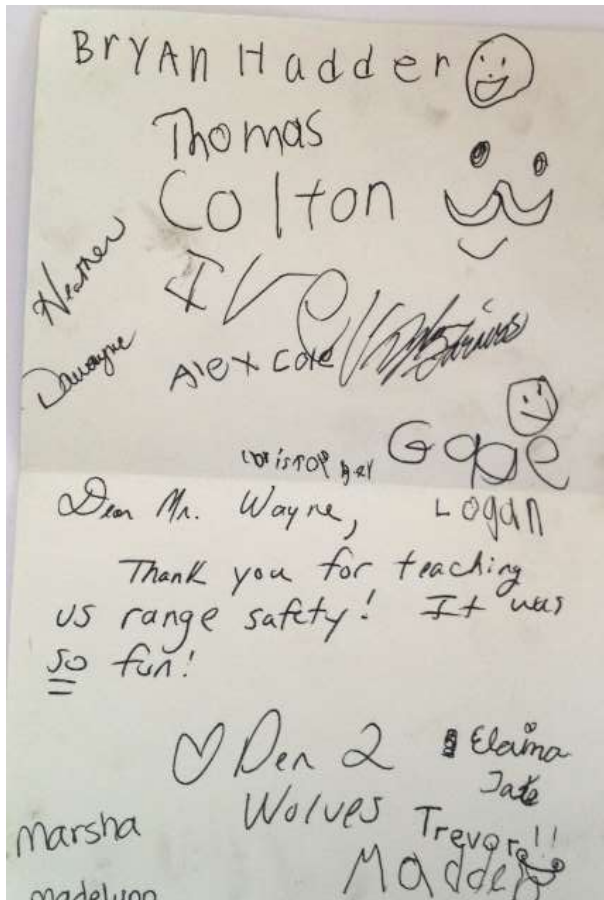 Bryan Hadder
Thomas
Colton
Heather
Dawayne
Alex Cole
Christopher
Gage
Logan
Dear Mr. Wayne,
Thank you for teaching
us range safety! It was
so fun!
♡ Den 2
Wolves
Elaina
Jake
Trevor!!
Marsha
Madelynn